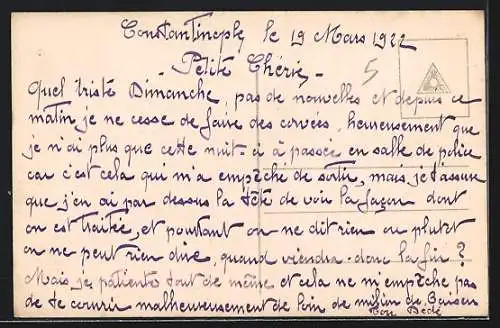 Constantinople le 19 Mars 1922
Petite Chérie,
5
Quel triste Dimanche, pas de nouvelles et depuis ce
matin je ne cesse de faire des corvées, heureusement que
je n'ai plus que cette nuit-ci à passée en salle de police
car c'est cela qui m'a empêché de sortir, mais je t'assure
que j'en ai par dessus la tête de voir la façon dont
on est traitée, et pourtant on ne dit rien ou plutôt
on ne peut rien dire, quand viendra-donc la fin ?
Mais je patiente tout de même et cela ne m'empêche pas
de te couvrir malheureusement de loin de de Baisers
Ton Dédé